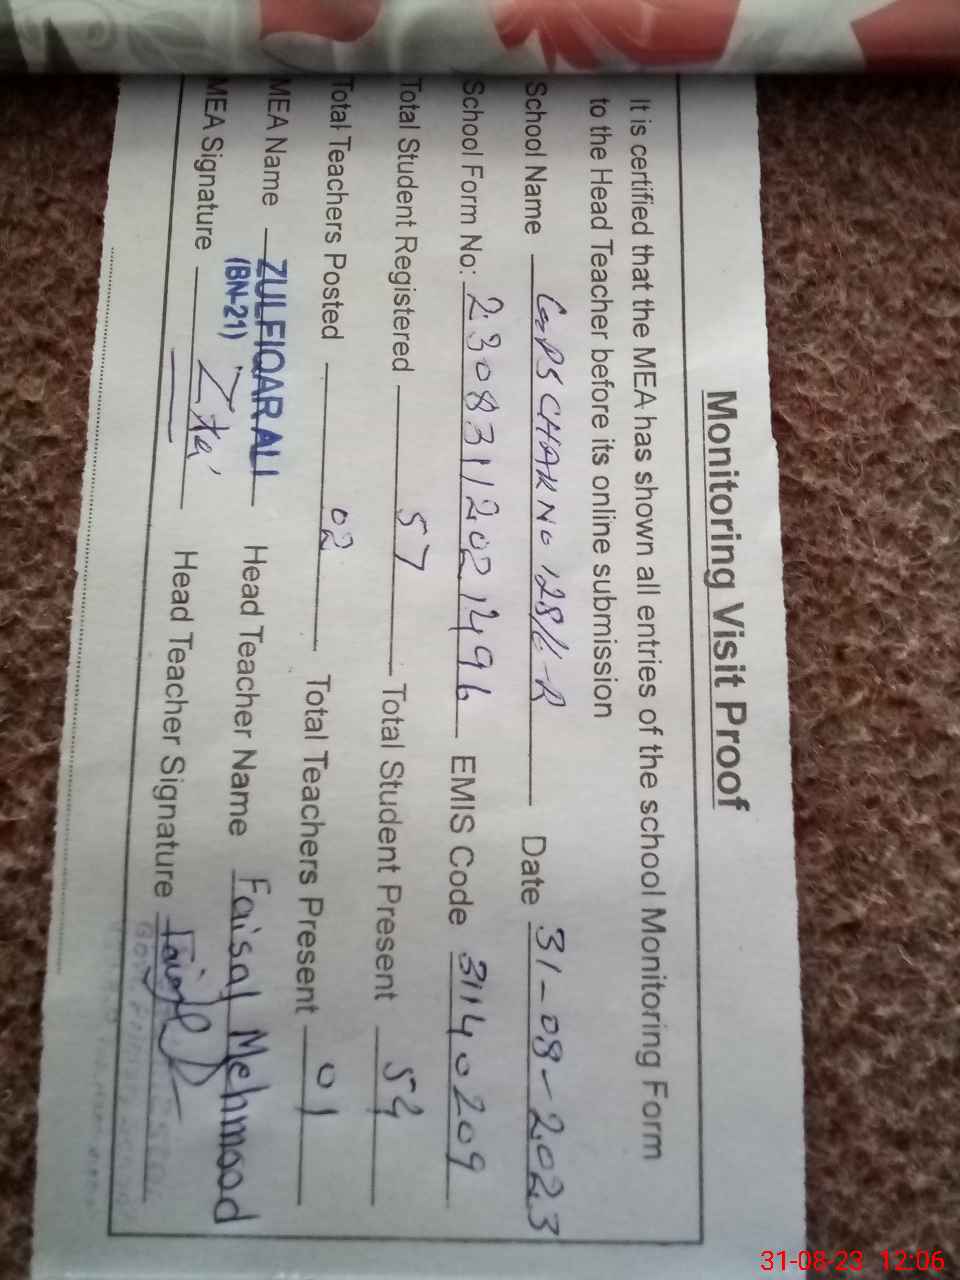 Monitoring Visit Proof
It is certified that the MEA has shown all entries of the school Monitoring Form
to the Head Teacher before its online submission
School Name GPS CHAK No 128/6-R Date 31-08-2023
School Form No: 2308311202 12496 EMIS Code 31140209
Total Student Registered 57 Total Student Present 54
Total Teachers Posted 02 Total Teachers Present 01
MEA Name ZULFIQAR ALI Head Teacher Name Faisal Mehmood
(BN-21)
MEA Signature Head Teacher Signature Faisal
31-08-23 12:06